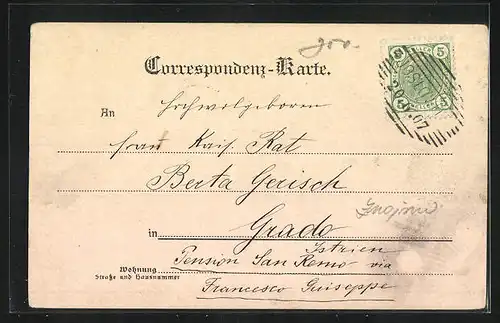 Correspondenz-Karte.
An Hochwolgeboren
Frau Kais. Rat
Berta Gerisch
in Grado
Istrien
Wohnung Pension San Remo via
Straße und Hausnummer
Francesco Guiseppe
5 5
5 5